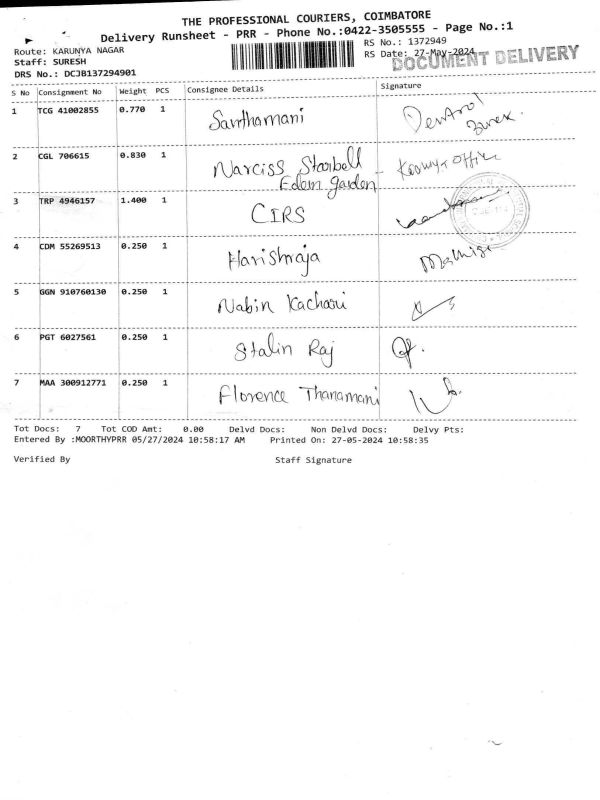 THE PROFESSIONAL COURIERS, COIMBATORE
Delivery Runsheet - PRR - Phone No.:0422-3505555 - Page No.:1
Route: KARUNYA NAGAR RS No.: 1372949
Staff: SURESH RS Date: 27-May-2024
DOCUMENT DELIVERY
DRS No.: DCJB137294901
S No Consignment No Weight PCS Consignee Details Signature
1 TCG 41002855 0.770 1 Santhamani
2 CGL 706615 0.830 1 Narciss Starbell
Edem garden
office
3 TRP 4946157 1.400 1 CIRS
4 CDM 55269513 0.250 1 Harishraja
5 GGN 910760130 0.250 1 Nabin Kachari
6 PGT 6027561 0.250 1 Stalin Raj
7 MAA 300912771 0.250 1 Florence Thanamani
Tot Docs: 7 Tot COD Amt: 0.00 Delvd Docs: Non Delvd Docs: Delvy Pts:
Entered By :MOORTHYPRR 05/27/2024 10:58:17 AM Printed On: 27-05-2024 10:58:35
Verified By Staff Signature